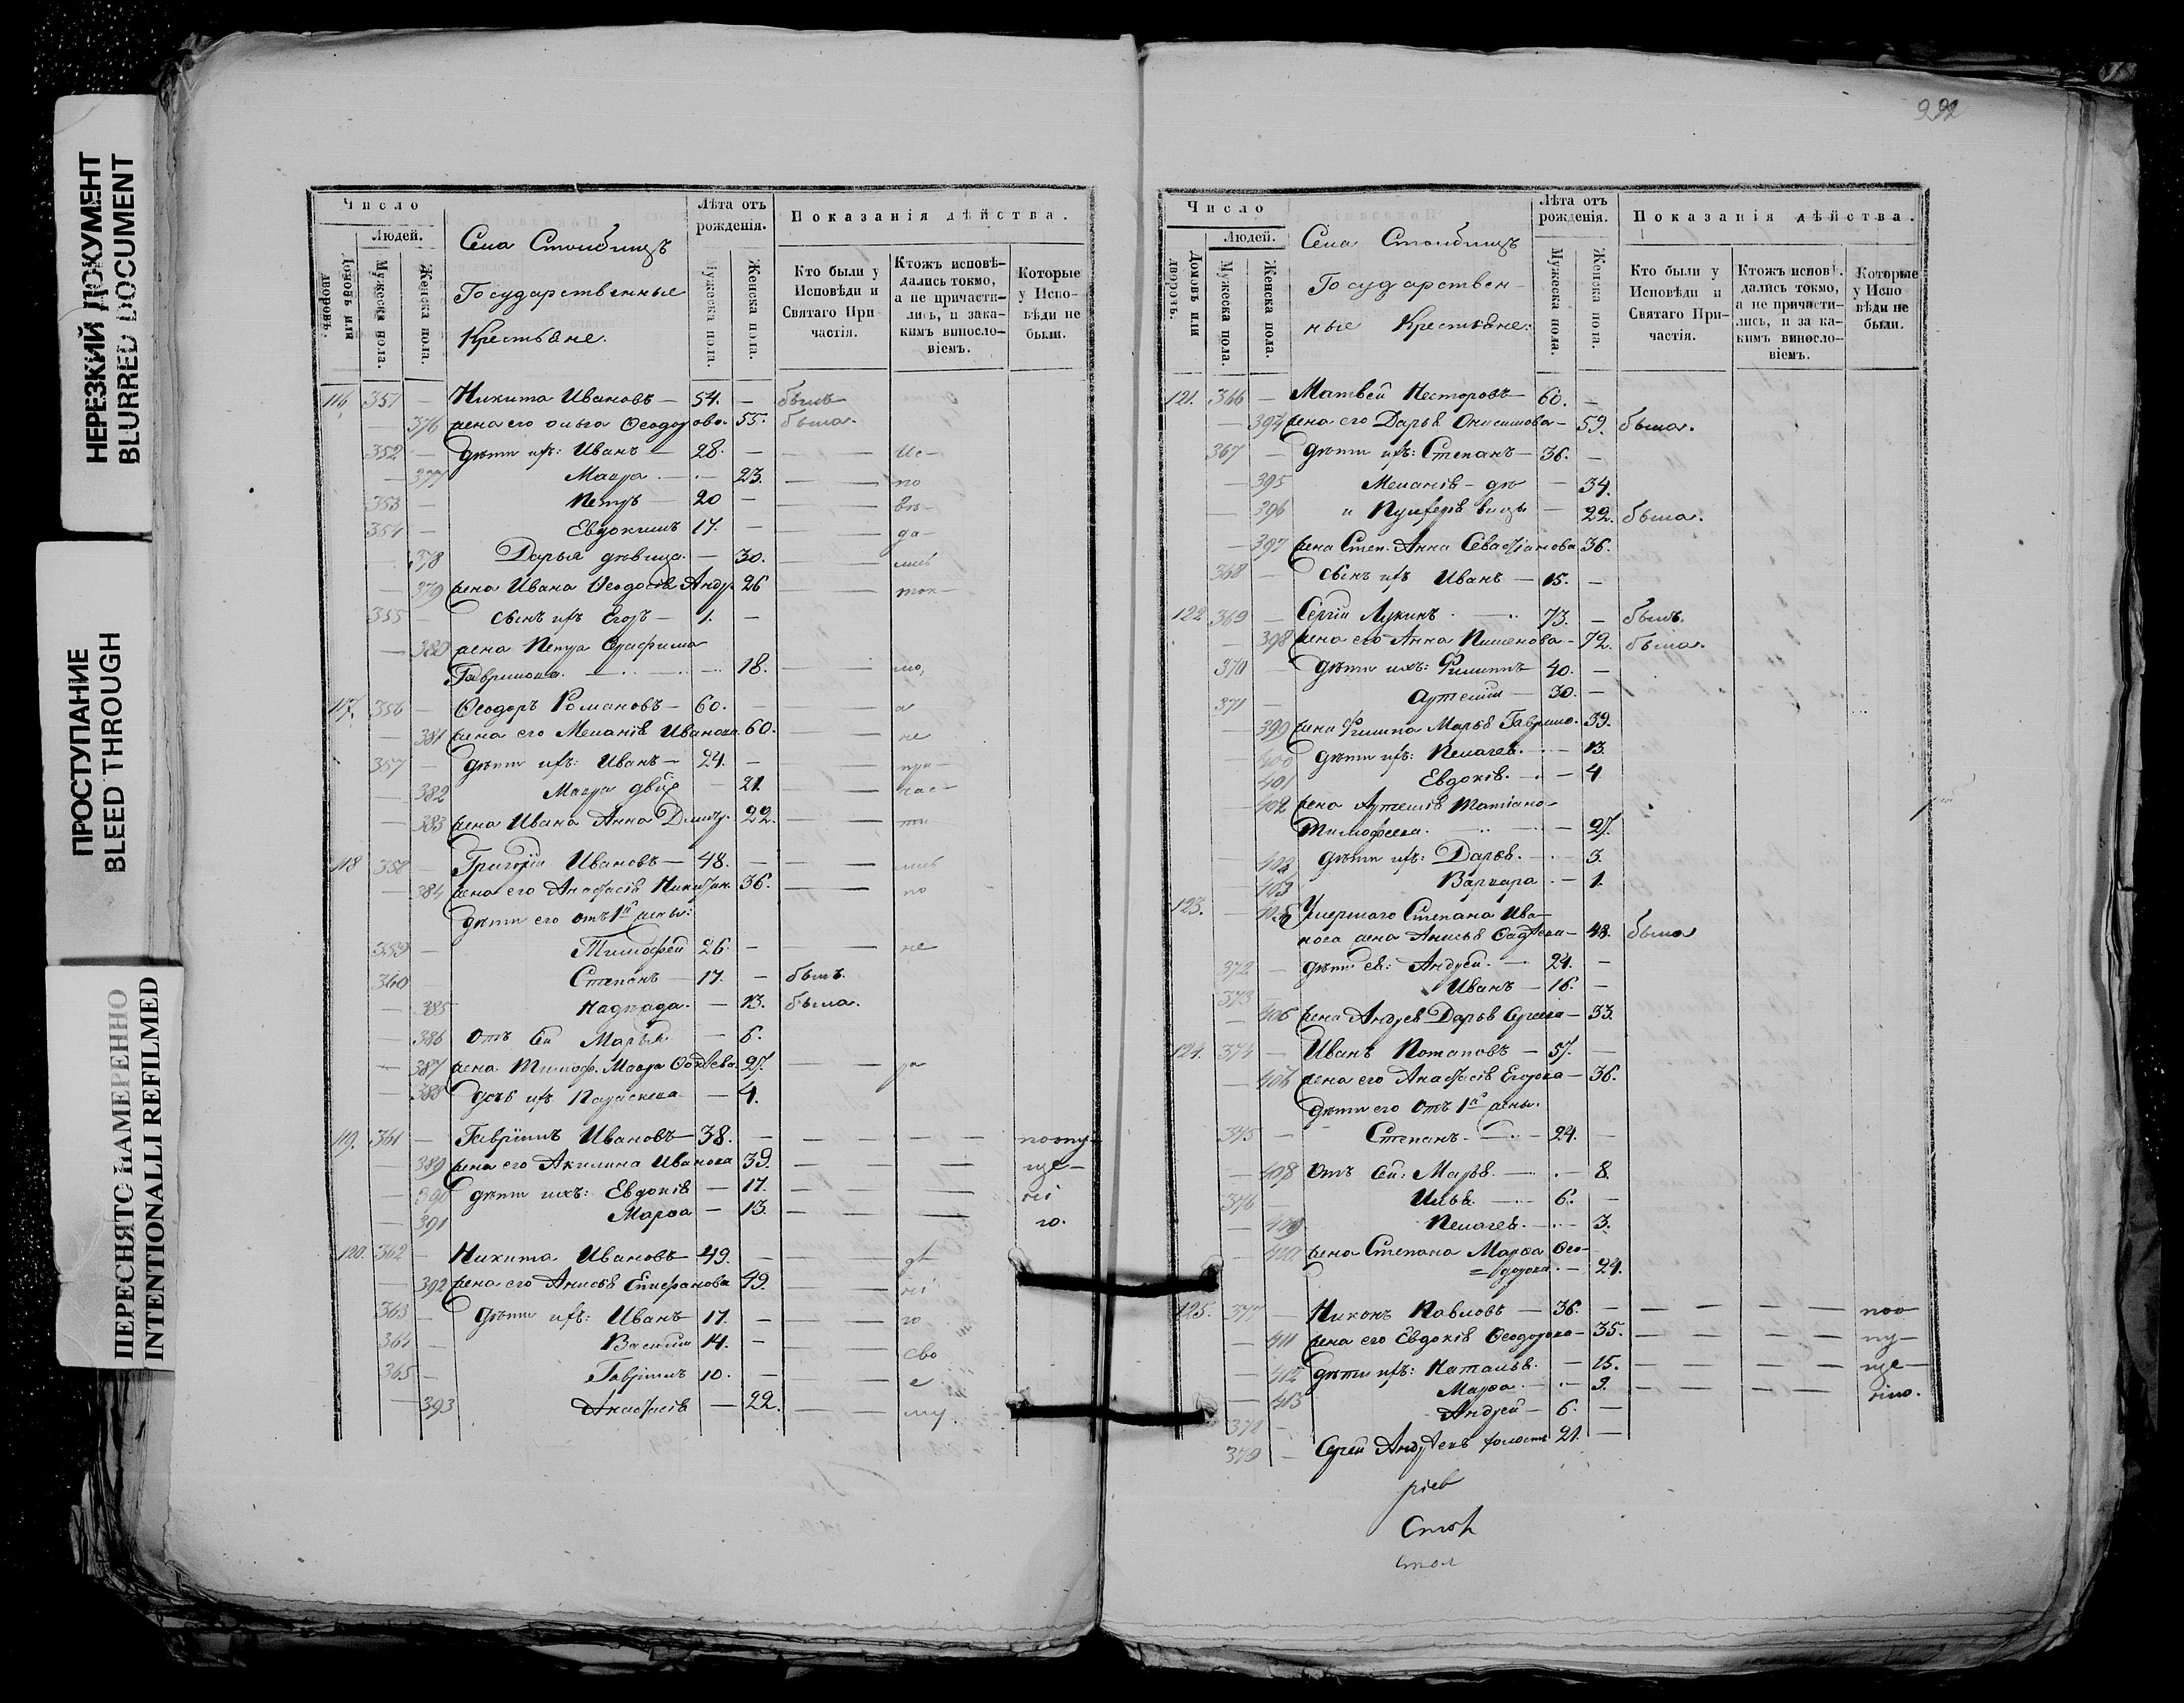 НЕРЕЗКИЙ ДОКУМЕНТ
BLURRED DOCUMENT
ПРОСТУПАНИЕ
BLEED THROUGH
ПЕРЕСНЯТО НАМЕРЕННО
INTENTIONALLI REFILMED
Число
Людей.
Домовъ или дворовъ.
Мужеска пола.
Женска пола.
Села Столбищъ
Государственные
Крестьяне.
Лѣта отъ рожденія.
Мужеска пола.
Женска пола.
Показанія дѣйства.
Кто были у Исповѣди и Святаго Причастія.
Ктожъ исповѣдались токмо, а не причастились, и закакимъ винословіемъ.
Которые у Исповѣди не были.
116 357 — Никита Ивановъ — 54. — былъ
— 376 жена его Ольга Ѳеодорова. 55. была.
352 — дѣти ихъ: Иванъ — 28. — Ис-
— 377 Мавра — 23. — по
353 — Петръ — 20 — вѣ-
354 — Евдокимъ 17. — да-
— 378 Дарья дѣвица. — 30. — лись
— 379 жена Ивана Ѳеодосія Андр. 26 — ток-
355 — сынъ ихъ Егоръ — 1. —
— 380 жена Петра
Гаврилова. — 18. — мо,
117. 356 — Ѳеодоръ Романовъ — 60. — а
— 381 жена его Меланія Иванова. 60. — не
357 — дѣти ихъ: Иванъ — 24. — при-
— 382 Мавра — 21. — час-
— 383 жена Ивана Анна Дмитр. 22. — ти
118 358 — Григорій Ивановъ — 48. — лись
— 384 жена его Анастасія Никитин. 36. — по
дѣти его отъ 1й жены:
359 — Тимофей 26. — не
360 — Степанъ — 17. — былъ
— 385 Надежда. — 13. была.
— 386 отъ сей Марья — 6.
— 387 жена Тимоф. Мавра 27. — ра
— 388 дочь ихъ Параскева — 4.
119. 361 — Гавріилъ Ивановъ — 38. — по опу-
— 389 жена его Акилина Иванова 39. — ще-
— 390 дѣти ихъ: Евдокія — 17. — ні
— 391 Марѳа — 13. — ю.
120. 362 — Никита Ивановъ — 49. —
— 392 жена его Анисья Епифанова 49. — ні
363 — дѣти ихъ: Иванъ — 17. — ю
364 — Василій 14. — сво
365 — Гавріилъ 10. — е
— 393 Анастасія — 22. — му.
Число
Людей.
Домовъ или дворовъ.
Мужеска пола.
Женска пола.
Села Столбищъ
Государствен-
ные Крестьяне:
Лѣта отъ рожденія.
Мужеска пола.
Женска пола.
Показанія дѣйства.
Кто были у Исповѣди и Святаго Причастія.
Ктожъ исповѣдались токмо, а не причастились, и за какимъ винословіемъ.
Которые у Исповѣди не были.
121. 366 — Матвей Несторовъ — 60. —
— 394 жена его Дарья Онисимова — 59. была.
367 — дѣти ихъ: Степанъ — 36. —
— 395 Меланія — дѣ — 34.
— 396 и Пулхерія вицы — 22. была.
— 397 жена Степ. Анна Севастіанова 36.
368 — сынъ ихъ Иванъ — 15. —
122 369 — Сергій Лукинъ — 73. — былъ.
398 жена его Анна Пименова — 72. была.
370 дѣти ихъ: Филиппъ — 40. —
371 — Артемій — 30. —
— 399 жена Филиппа Марья Гаврило. 39.
400 дѣти ихъ: Пелагея. — 13.
401 Евдокія. — 4
— 402 жена Артемія Татіана
Тимофеева. — 27.
402 дѣти ихъ: Дарья. — 3.
403 Варвара. — 1.
123. — Умершаго Степана Ива-
нова жена Анисья — 48. была
372 — дѣти ея: Андрей. — 24. —
373 Иванъ — 16. —
— 405 жена Андрея Дарья — 33.
124. 374 — Иванъ Потаповъ — 57. —
— 406 жена его Анастасія Егорова — 36.
дѣти его отъ 1й жены.
375 — Степанъ. — 24. —
— 408 отъ сей: Марья. — 8.
376 — Илья. — 6. —
— 409 Пелагея. — 3.
— 410 жена Степана Марѳа Ѳео-
=дорова. — 24.
125. 377 — Никонъ Павловъ — 36. — по о
— 411 жена его Евдокія Ѳеодорова — 35. — пу-
— 412 дѣти ихъ: Наталья. — 15. — ще-
— 413 Марѳа. — 9. — нію.
378 — Андрей — 6. —
379 — Сергей холостъ 21. —